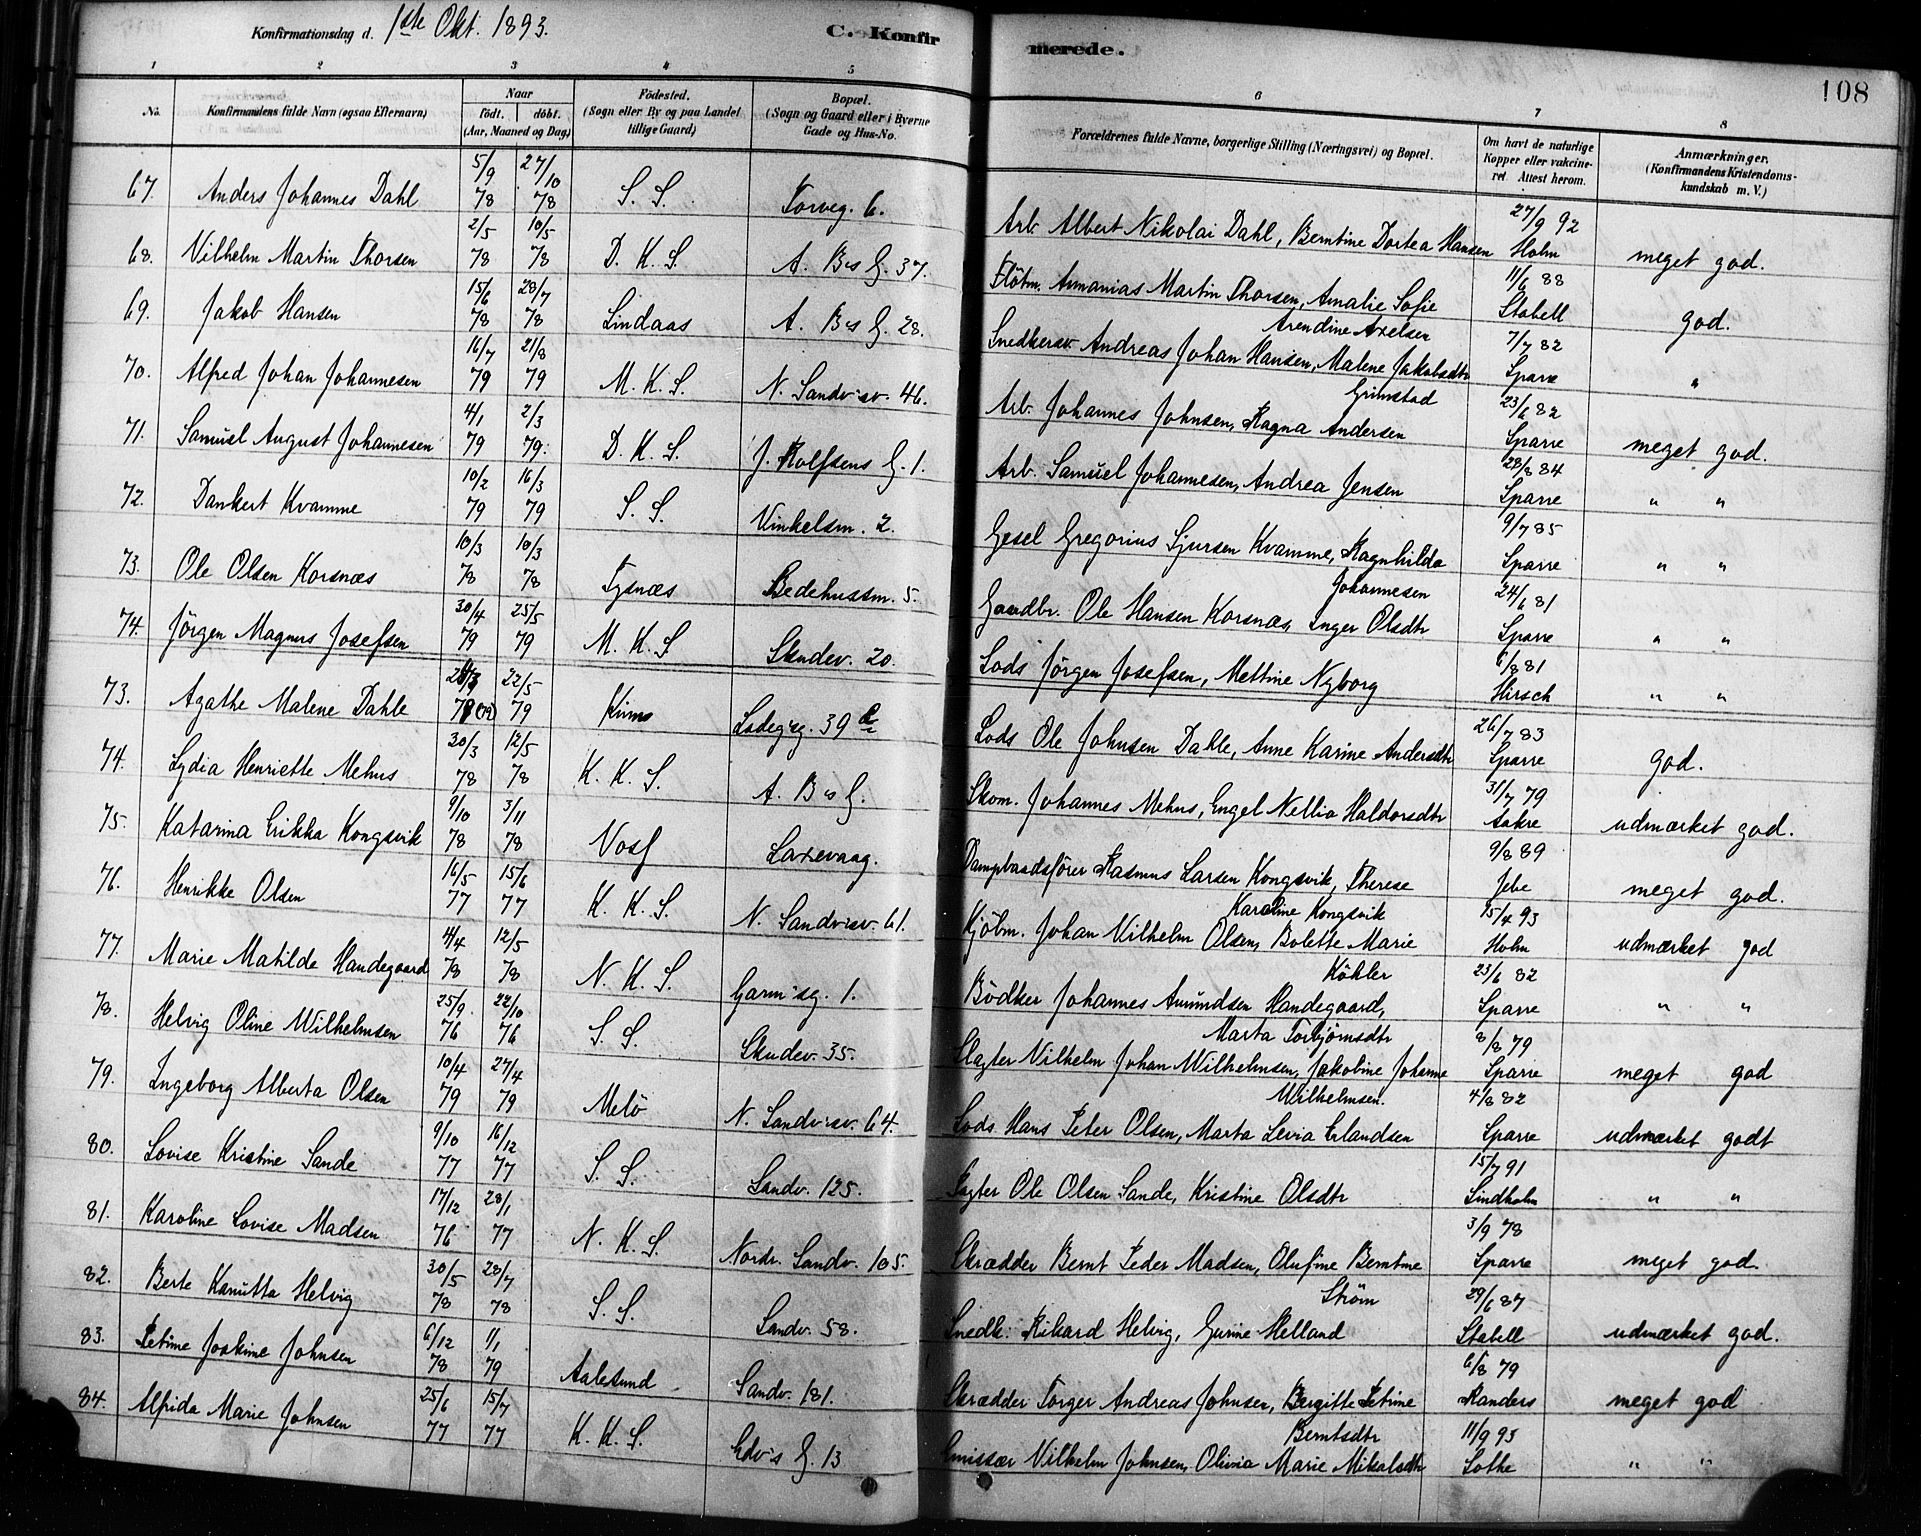 Konfirmationsdag d. 1ste Okt. 1893.
C. Konfirmerede.
108
1 2 3 4 5 6 7 8
No. Konfirmandens fulde Navn (ogsaa Efternavn) Naar født. døbt. (Aar, Maaned og Dag) Fødested. (Sogn eller By og paa Landet tillige Gaard) Bopæl. (Sogn og Gaard eller i Byerne Gade og Hus-No. Forældrenes fulde Navne, borgerlige Stilling (Næringsvei) og Bopæl. Om havt de naturlige Kopper eller vakcineret. Attest herom. Anmærkninger. (Konfirmandens Kristendomskundskab m. V.)
67. Anders Johannes Dahl 5/9 78 27/10 78 S. S. Torveg. 6. Arb. Albert Nikolai Dahl, Berntine Dortea Hansen 27/9 92 Holm meget god.
68. Vilhelm Martin Thorsen 2/5 78 10/5 78 D. K. S. A. B's G. 37. Fløtm. Annanias Martin Thorsen, Amalie Sofie Arendine Axelsen 11/6 88 Stabell god.
69. Jakob Hansen 15/6 78 28/7 78 Lindaas A. B's G. 28. Snedkersv. Andreas Johan Hansen, Malene Jakobsdtr Grimstad 7/7 82 Sparre "
70. Alfred Johan Johannesen 16/7 79 21/8 79 M. K. S. N. Sandvisv. 46. Arb. Johannes Johnsen, Ragna Andersen 23/6 82 Sparre meget god.
71. Samuel August Johannesen 4/1 79 2/3 79. D. K. S. J. Rolfsens G. 1. Arb. Samuel Johannesen, Andrea Jensen 28/8 84 Sparre " "
72. Dankert Kvamme 10/2 79 16/3 79 S. S. Vinkelsm. 2. Gesel Gregorius Sjursen Kvamme, Ragnhilda Johannesen 9/7 85 Sparre " "
73. Ole Olsen Korsnæs 10/3 78 10/3 78 Tysnæs Bedehussm. 5. Gaardbr. Ole Hansen Korsnæs, Inger Olsdtr 24/6 81 Sparre " "
74. Jørgen Magnus Josefsen 30/4 79 25/5 79 M. K. S Skudev. 20. Lods Jørgen Josefsen, Mettine Nyborg 6/8 81 Hirsch " "
73. Agathe Malene Dahle 22/5 79 Kinns Ladegsg. 39 Lods Ole Johnsen Dahle, Anne Karine Andersdtr 26/7 83 Sparre god.
74. Lydia Henriette Mehus 30/3 78 12/5 78 K. K. S. A. B's G. Skom. Johannes Mehus, Engel Nellia Haldorsdtr 31/7 79 Aakre udmærket god.
75. Katarina Erikka Kongsvik 9/10 78 3/11 78 Voss Laxevaag. Dampbaadsfører Rasmus Larsen Kongsvik, Therese Karoline Kongsvik 9/8 89 Jebe meget god.
76. Henrikke Olsen 16/5 77 15/6 77 K. K. S. N. Sandvisv. 61. Kjøbm. Johan Vilhelm Olsen, Bolette Marie Köhler 15/4 93 Holm udmærket god
77. Marie Matilde Handegaard 4/4 78 12/5 78 N. K. S. Garvisg. 1. Bødker Johannes Amundsen Handegaard, Marta Torbjørnsdtr 23/6 82 Sparre " "
78. Helvig Oline Wilhelmsen 25/9 76 22/10 76 S. S. Skudev. 35. Slagter Vilhelm Johan Wilhelmsen, Jakobine Johanne Wilhelmsen. 8/8 79 Sparre meget god
79. Ingeborg Alberta Olsen 10/4 79 27/4 79 Melö N. Sandvisv. 64. Lods Hans Peter Olsen, Marta Levia Erlandsen 4/8 82 Sparre udmærket godt
80. Lovise Kristine Sande 9/10 77 16/12 77 S. S. Sandv. 125. Ole Olsen Sande, Kristine Olsdtr 15/7 91 Lindholm " "
81. Karoline Lovise Madsen 17/12 76 28/1 77 N. K. S Nordr. Sandv. 105. Skrædder Bernt Peder Madsen, Olufine Berntine Strøm 3/9 78 Sparre meget god.
82. Berte Kanutta Helvig 30/5 78 28/7 78 S. S. Sandv. 58. Snedk. Rikard Helvig, Gurine Helland 29/6 87 Stabell udmærket god.
83. Petrine Joakime Johnsen 6/12 78 1/1 79 Aalesund Sandv. 181. Skrædder Torger Andreas Johnsen, Bergitte Petrine Berntsdtr 6/8 79 Randers meget god
84. Alfrida Marie Johnsen 25/6 77 15/7 77 K. K. S. Edv's G. 13 Emissær Vilhelm Johnsen, Olivia Marie Mikalsdtr 11/9 93 Lothe " "